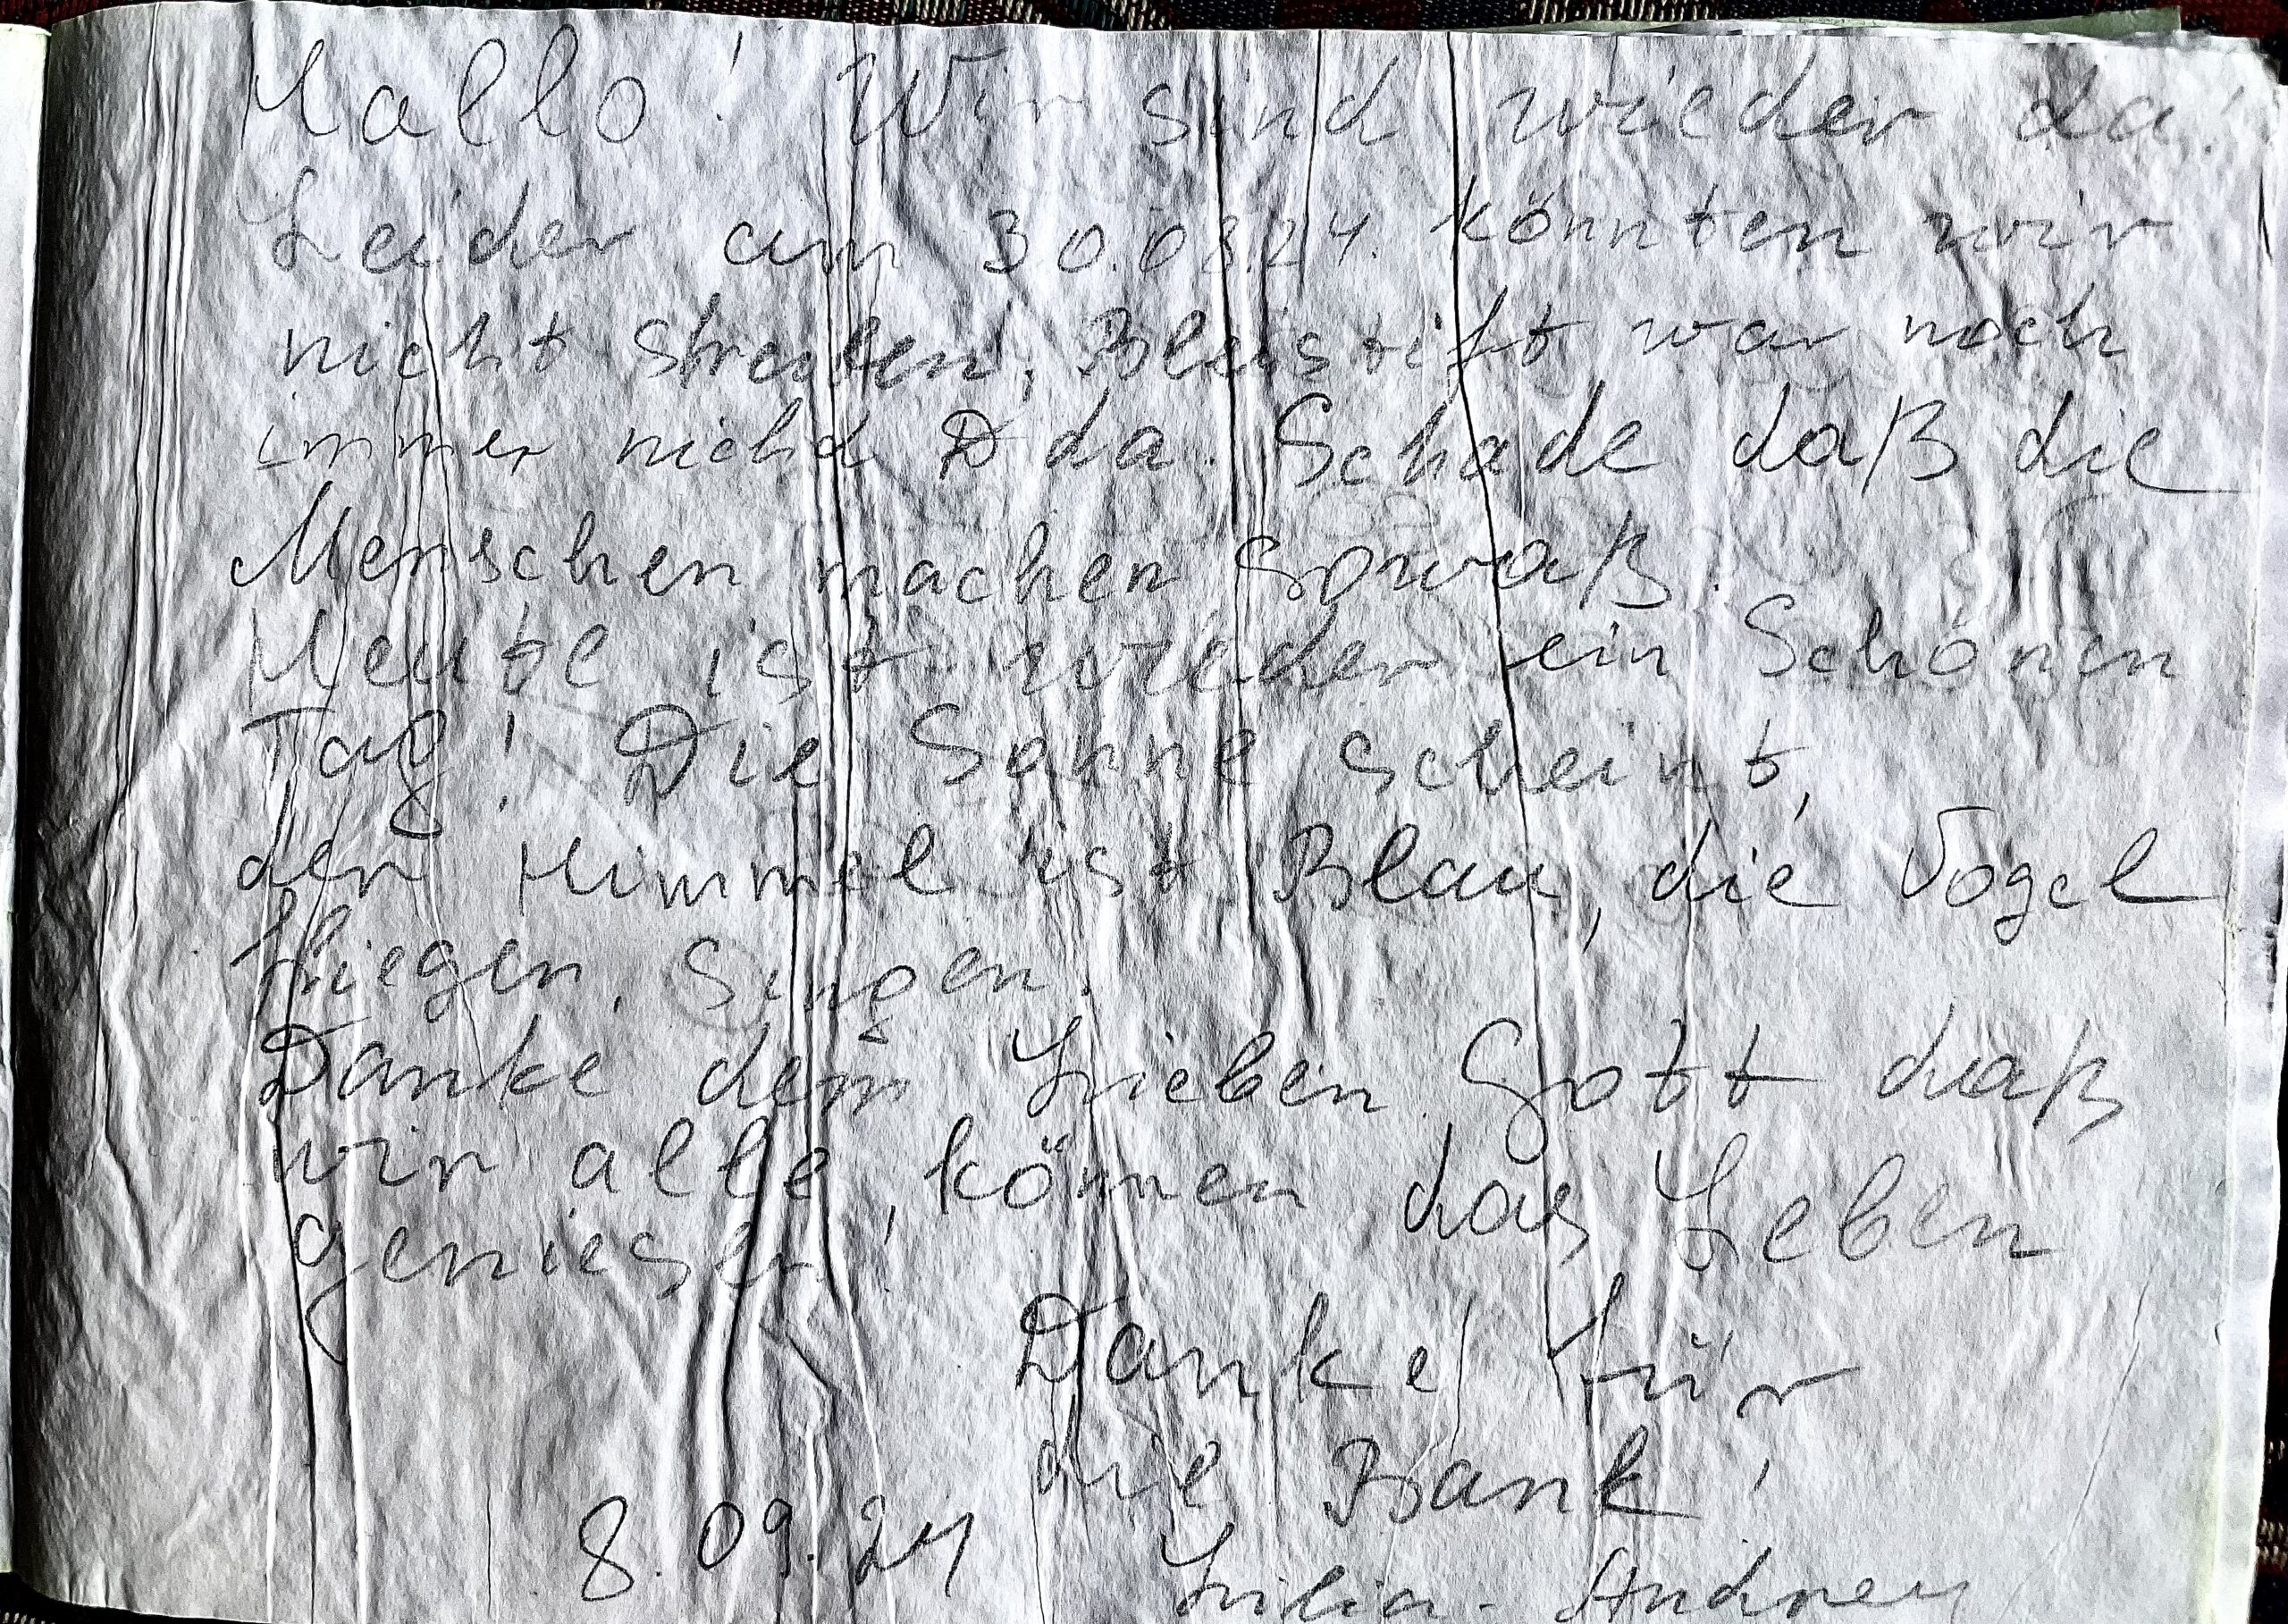 Hallo! Wir sind wieder da!
Leider am 30.08.24. könnten wir
nicht streiben, Bleistift war noch
immer nicht D da. Schade daß die
Menschen machen sowaß.
Heute ist wieder ein Schönen
Tag! Die Sonne scheint,
der Himmel ist Blau, die Vogel
fliegen, Singen.
Danke dem Lieben Gott daß
wir alle, können das Leben
geniesen!
Danke für
die Bank!
8.09.24
Lilia - Andrey